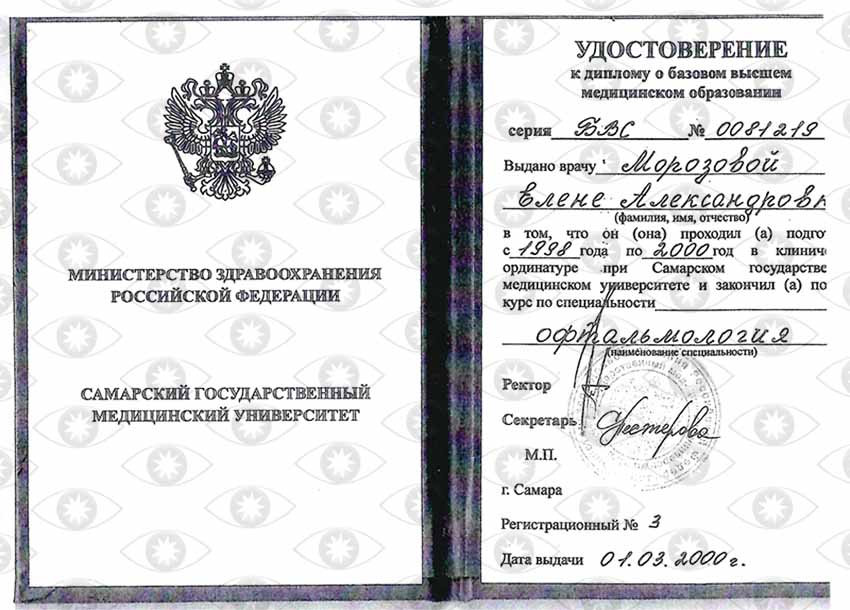 МИНИСТЕРСТВО ЗДРАВООХРАНЕНИЯ
РОССИЙСКОЙ ФЕДЕРАЦИИ
САМАРСКИЙ ГОСУДАРСТВЕННЫЙ
МЕДИЦИНСКИЙ УНИВЕРСИТЕТ
УДОСТОВЕРЕНИЕ
к диплому о базовом высшем
медицинском образовании
серия БВС № 0081219
Выдано врачу Морозовой
Елене Александровн
(фамилия, имя, отчество)
в том, что он (она) проходил (а) подго
с 1998 года по 2000 год в клинич
ординатуре при Самарском государстве
медицинском университете и закончил (а) по
курс по специальности
офтальмология
(наименование специальности)
Ректор
Секретарь Нестерова
М.П.
г. Самара
Регистрационный № 3
Дата выдачи 01.03.2000г.